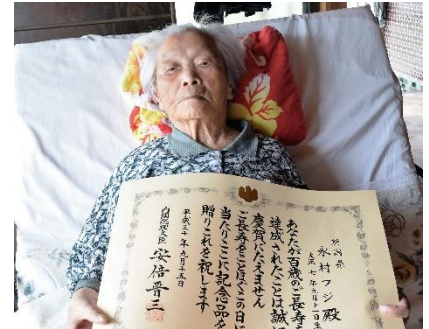 永村フジ殿
大正七年九月十一日
あなたが百歳のご長寿を
達成されたことは誠
慶賀にたえません
ご長寿をことほぐこの日に
当たりここに記念品を
贈りこれを祝します
平成三十年九月十五日
内閣総理大臣 安倍晋三